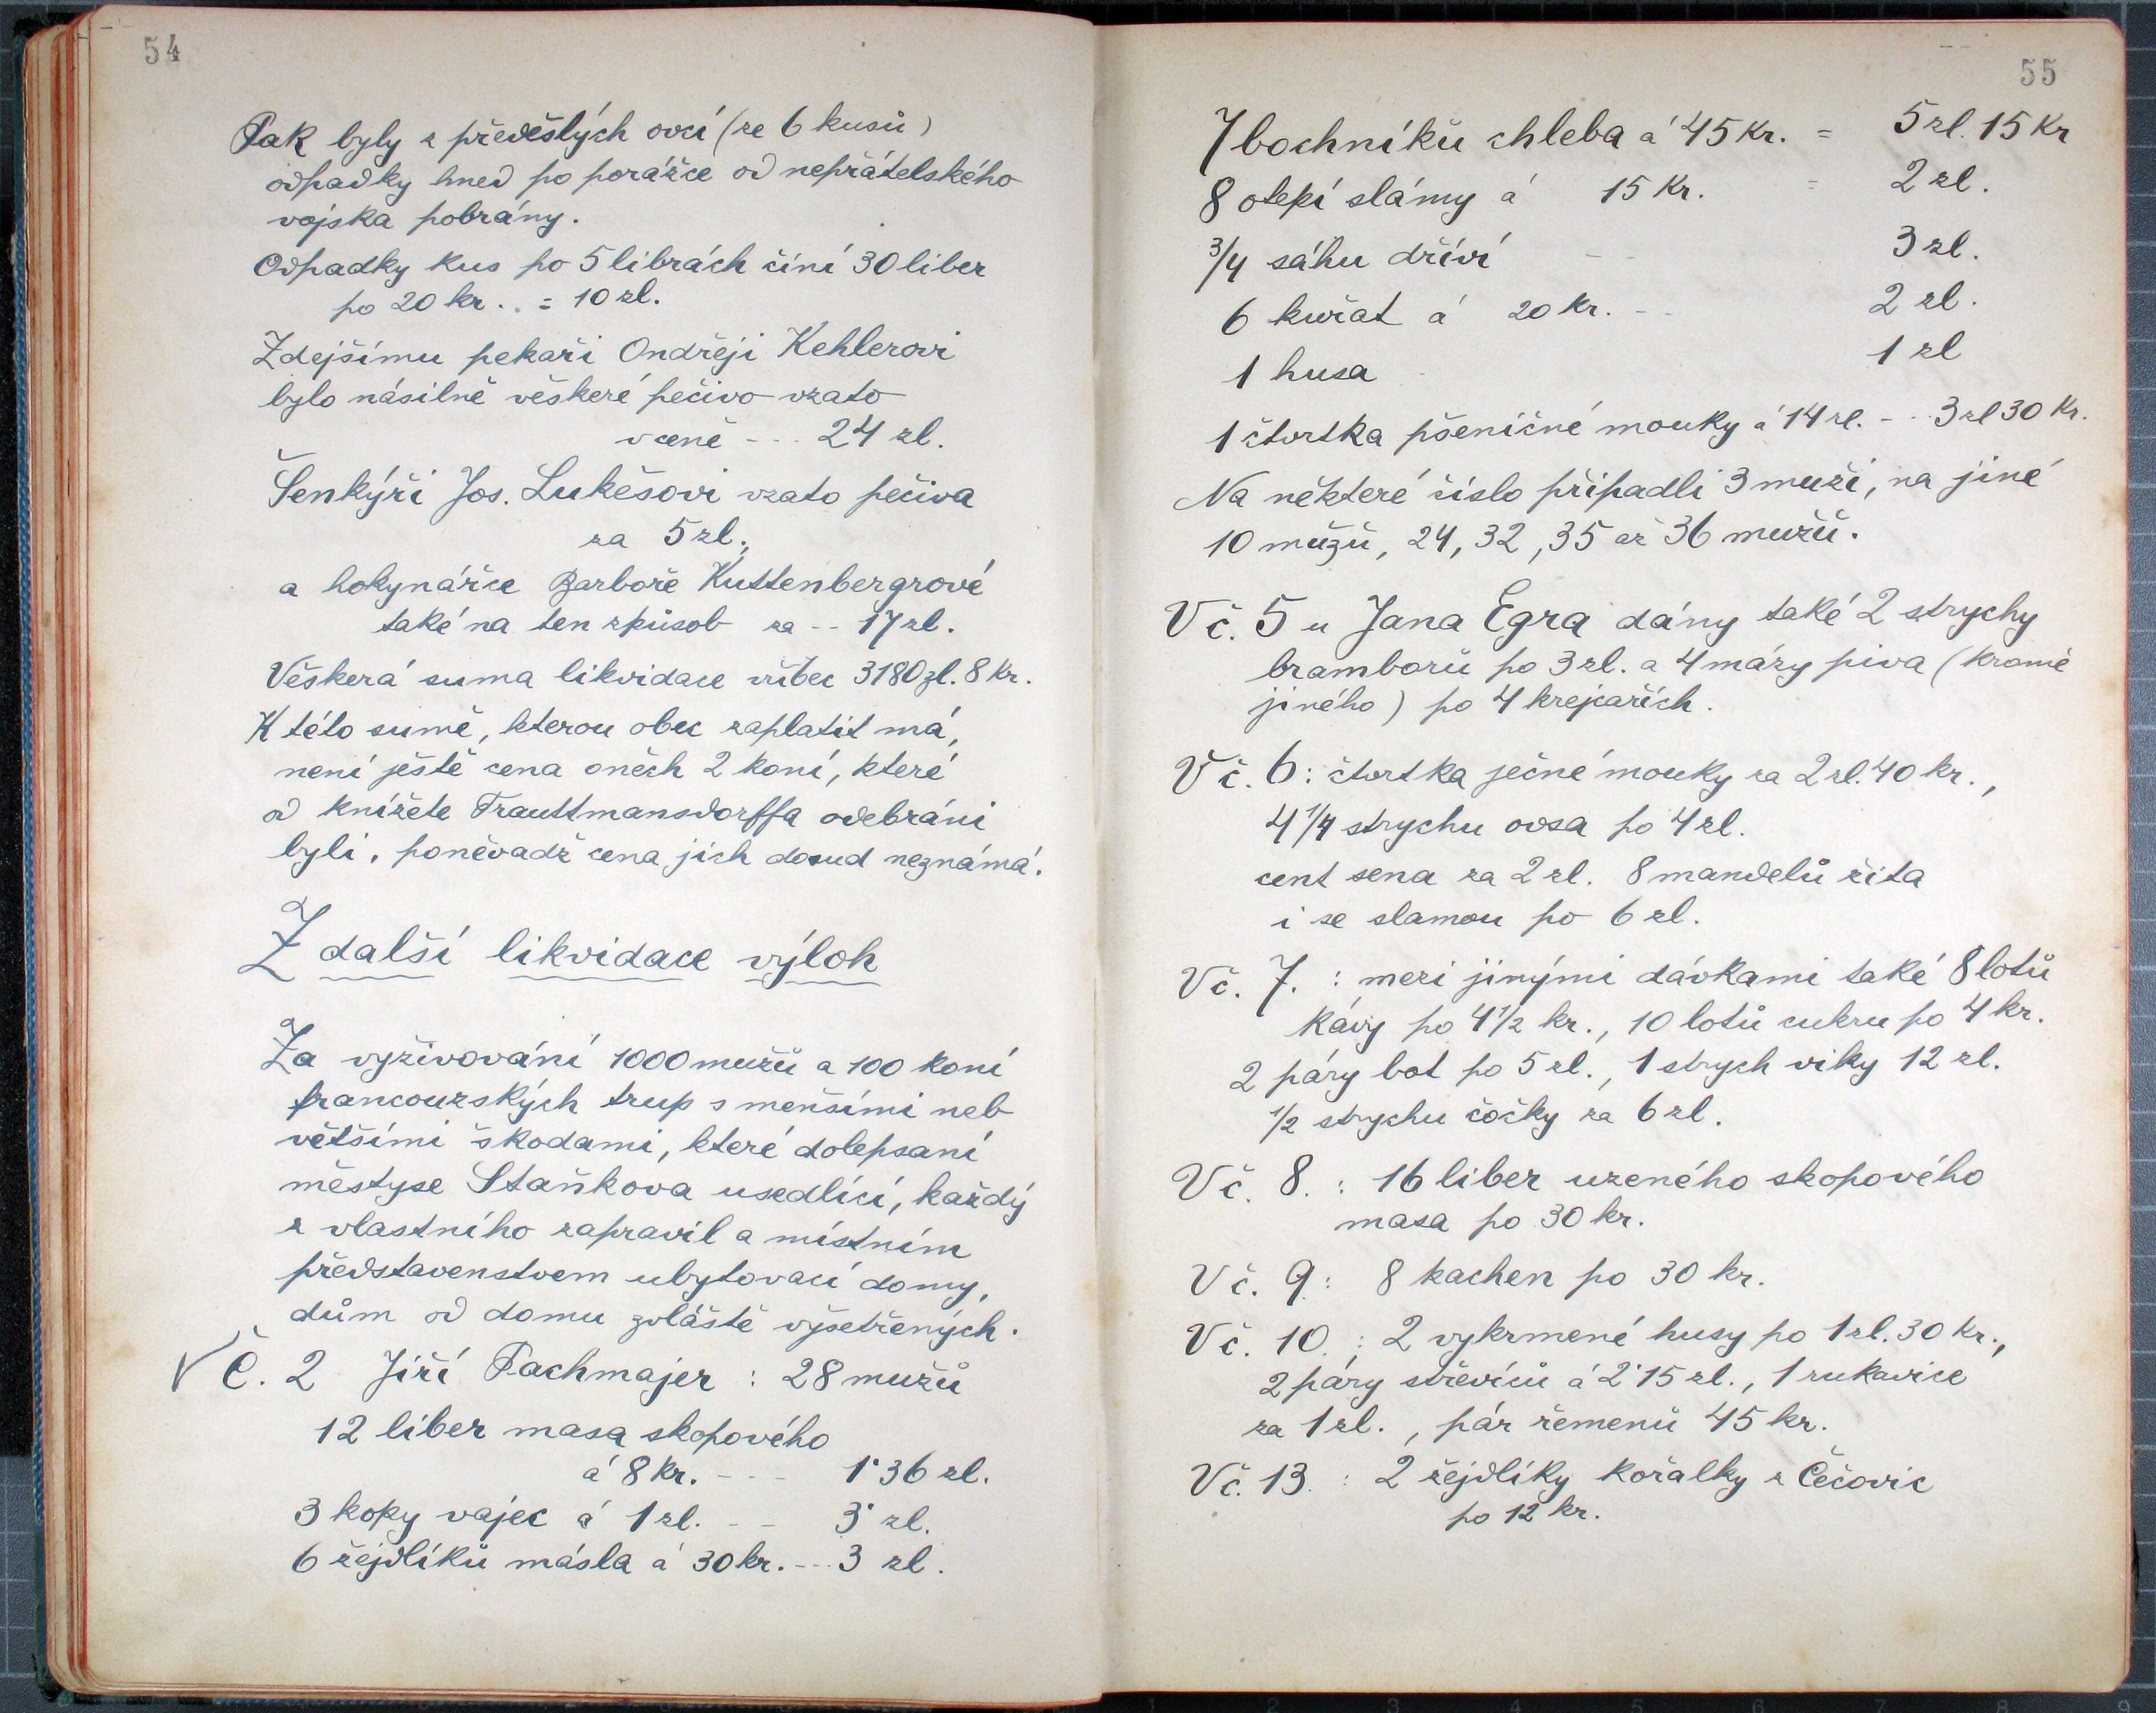 54
Pak byly z předešlých ovcí (ze 6 kusů)
odpadky hned po porážce od nepřátelského
vojska pobrány.
Odpadky kus po 5 librách činí 30 liber
po 20 kr. . = 10 zl.
Zdejšímu pekaři Ondřeji Kehlerovi
bylo násilně věškeré pečivo vzato
v ceně - - - 24 zl.
Šenkýři Jos. Lukešovi vzato pečiva
za 5 zl.,
a hokynářce Barboře Kuttenbergrové
také na ten způsob za - - 17 zl.
Věškerá suma likvidace vůbec 3180 zl. 8 kr.
K této sumě, kterou obec zaplatit má,
není ještě cena oněch 2 koní, které
od knížete Trauttmansdorffa odebráni
byli, poněvadž cena jich dosud neznámá.
Z další likvidace výloh
Za vyživování 1000 mužů a 100 koní
francouzských trup s menšími neb
většími škodami, které dolepsaní
městyse Staňkova usedlíci, každý
z vlastního zapravil a místním
představenstvem ubytovací domy,
dům od domu zvláště vyšetřených.
V Č. 2 Jiří Pachmajer : 28 mužů
12 liber masa skopového
á 8 kr. - - - 1˙36 zl.
3 kopy vajec á 1 zl. - - 3˙ zl.
6 žejdlíků másla á 30 kr. - - - 3 zl.
55
7 bochníků chleba á 45 Kr. = 5 zl. 15 Kr
8 otepí slámy á 15 Kr. = 2 zl.
3/4 sáhu dříví - - 3 zl.
6 kuřat á 20 Kr. - - 2 zl.
1 husa 1 zl
1 čtvrtka pšeničné mouky á 14 zl. - - 3 zl 30 Kr.
Na některé číslo připadli 3 muži, na jiné
10 mužů, 24, 32, 35 až 36 mužů.
V č. 5 u Jana Egra dány také 2 strychy
bramborů po 3 zl. a 4 mázy piva (kromě
jiného) po 4 krejcařích.
V č. 6 : čtvrtka ječné mouky za 2 zl. 40 kr.,
4 1/4 strychu ovsa po 4 zl.
cent sena za 2 zl. 8 mandelů žita
i se slamou po 6 zl.
V č. 7. : mezi jinými dávkami také 8 lotů
kávy po 4 1/2 kr., 10 lotů cukru po 4 kr.
2 páry bot po 5 zl., 1 strych viky 12 zl.
1/2 strychu čočky za 6 zl.
V č. 8. : 16 liber uzeného skopového
masa po 30 kr.
V č. 9 : 8 kachen po 30 kr.
V č. 10. : 2 vykrmené husy po 1 zl. 30 kr.,
2 páry střevíců á 2˙15 zl., 1 rukavice
za 1 zl., pár řemenů 45 kr.
V č. 13. : 2 žejdlíky kořalky z Čečovic
po 12 kr.